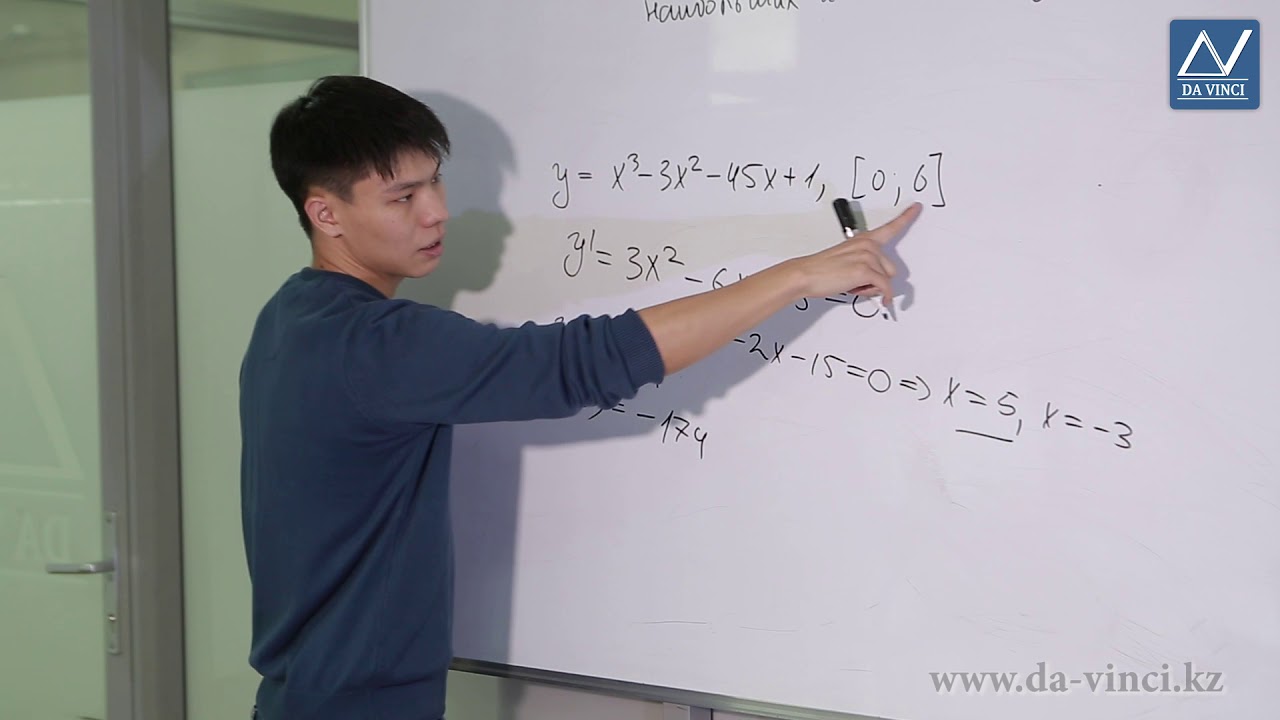 наибольших
DA VINCI
y = x³-3x²-45x+1, [0; 6]
y' = 3x² - 6x = 0.
-2x-15=0 => x=5, x=-3
= -174
www.da-vinci.kz